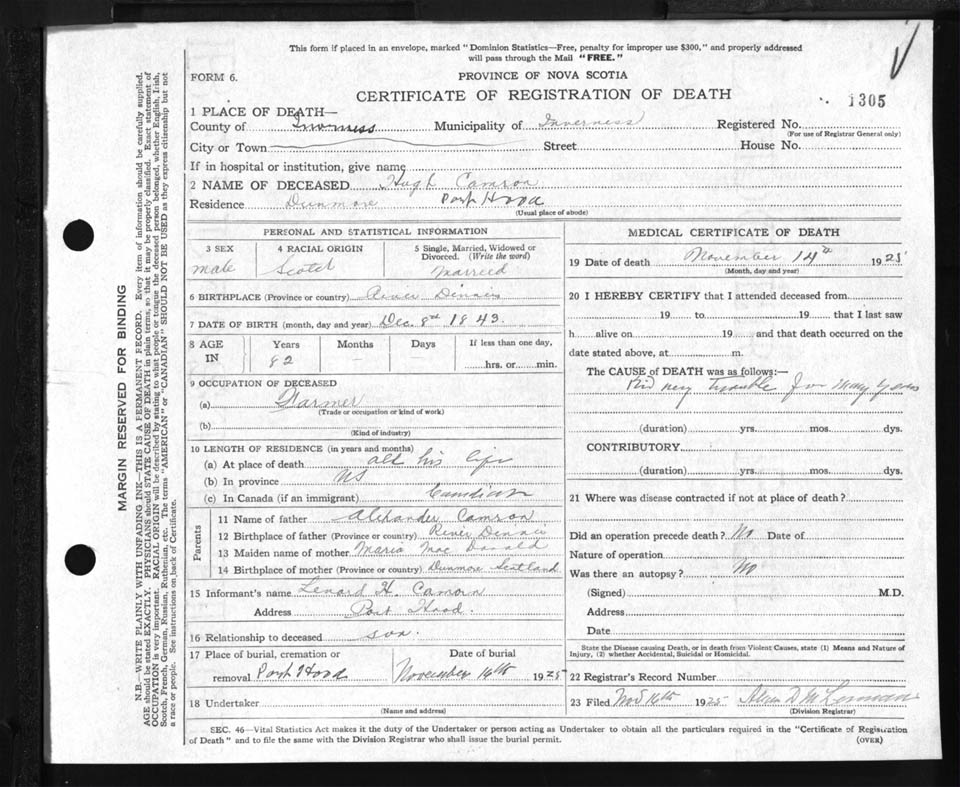 This form if placed in an envelope, marked "Dominion Statistics—Free, penalty for improper use $300," and properly addressed
will pass through the Mail "FREE."
FORM 6.
PROVINCE OF NOVA SCOTIA
CERTIFICATE OF REGISTRATION OF DEATH
1305
1 PLACE OF DEATH—
County of Inverness Municipality of Inverness Registered No.
(For use of Registrar General only)
City or Town Street House No.
If in hospital or institution, give name
2 NAME OF DECEASED Hugh Camron
Residence Dunmore Port Hood
(Usual place of abode)
PERSONAL AND STATISTICAL INFORMATION
3 SEX 4 RACIAL ORIGIN 5 Single, Married, Widowed or
Divorced. (Write the word)
male Scotch Marreed
6 BIRTHPLACE (Province or country) River Dennis
7 DATE OF BIRTH (month, day and year) Dec. 8th 1843.
8 AGE IN Years Months Days If less than one day,
82 — — hrs. or min.
9 OCCUPATION OF DECEASED
(a) Farmer
(Trade or occupation or kind of work)
(b)
(Kind of industry)
10 LENGTH OF RESIDENCE (in years and months)
(a) At place of death all his life
(b) In province NS
(c) In Canada (if an immigrant)
Parents
11 Name of father Alexander Camron
12 Birthplace of father (Province or country) River Dennis
13 Maiden name of mother Maria Mac Donald
14 Birthplace of mother (Province or country) Dunmore Scotland
15 Informant's name Lenard H. Camorn
Address Port Hood.
16 Relationship to deceased son.
17 Place of burial, cremation or Date of burial
removal Port Hood November 16th 1925
18 Undertaker
(Name and address)
MEDICAL CERTIFICATE OF DEATH
19 Date of death November 14th 1925
(Month, day and year)
20 I HEREBY CERTIFY that I attended deceased from
19 to 19 that I last saw
h alive on 19 and that death occurred on the
date stated above, at m.
The CAUSE of DEATH was as follows:—
Kidney Trouble for Many Years
(duration) yrs. mos. dys.
CONTRIBUTORY
(duration) yrs. mos. dys.
21 Where was disease contracted if not at place of death?
Did an operation precede death? No Date of
Nature of operation
Was there an autopsy? No
(Signed) M.D.
Address
Date
State the Disease causing Death, or in death from Violent Causes, state (1) Means and Nature of
Injury, (2) whether Accidental, Suicidal or Homicidal.
22 Registrar's Record Number
23 Filed Nov 16th 1925
(Division Registrar)
SEC. 46—Vital Statistics Act makes it the duty of the Undertaker or person acting as Undertaker to obtain all the particulars required in the "Certificate of Registration
of Death" and to file the same with the Division Registrar who shall issue the burial permit. (OVER)
MARGIN RESERVED FOR BINDING
N.B.—WRITE PLAINLY WITH UNFADING INK—THIS IS A PERMANENT RECORD. Every item of information should be carefully supplied.
AGE should be stated EXACTLY. PHYSICIANS should STATE CAUSE OF DEATH in plain terms, so that it may be properly classified. Exact statement of
OCCUPATION is very important. RACIAL ORIGIN will be described by stating to what people or tongue the deceased person belonged, whether English, Irish,
Scotch, French, German, Russian, Ruthenian, etc. The terms "AMERICAN" or "CANADIAN" SHOULD NOT BE USED as they express citizenship but not
a race or people. See instructions on back of Certificate.